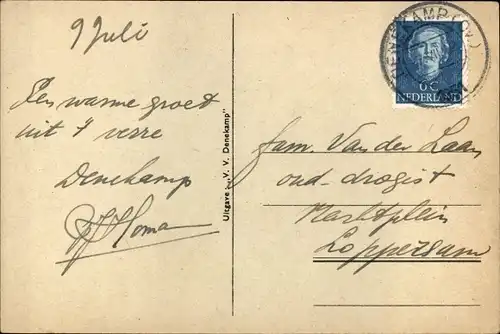 9 Juli
Een warme groet
uit 't verre
Denekamp
Homa
Uitgave „V. V. Denekamp"
DENEKAMP (OV.)
6 C
NEDERLAND
fam. Van der Laan
oud-drogist
Marktplein
Loppersum